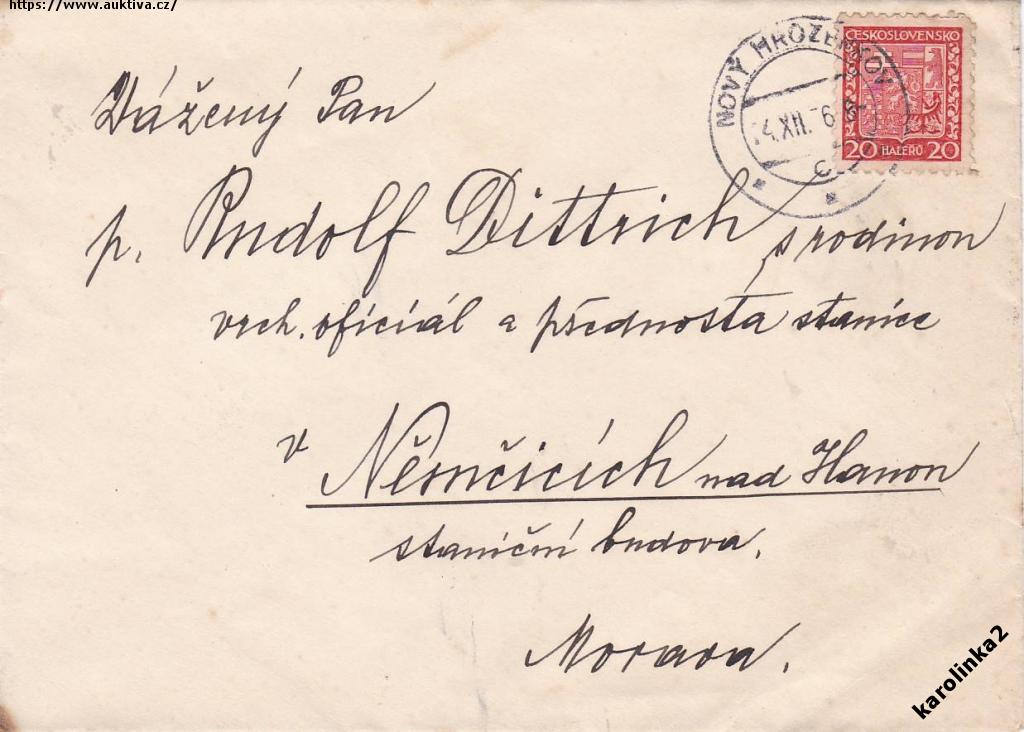 https://www.auktiva.cz/
NOVÝ HROZENKOV
ČESKOSLOVENSKO
20 HALÉŘŮ 20
Vážený Pan
p. Rudolf Dittrich s rodinou
vrch. oficiál a přednosta stanice
v Němčicích nad Hanou
staniční budova.
Morava.
karolinka2